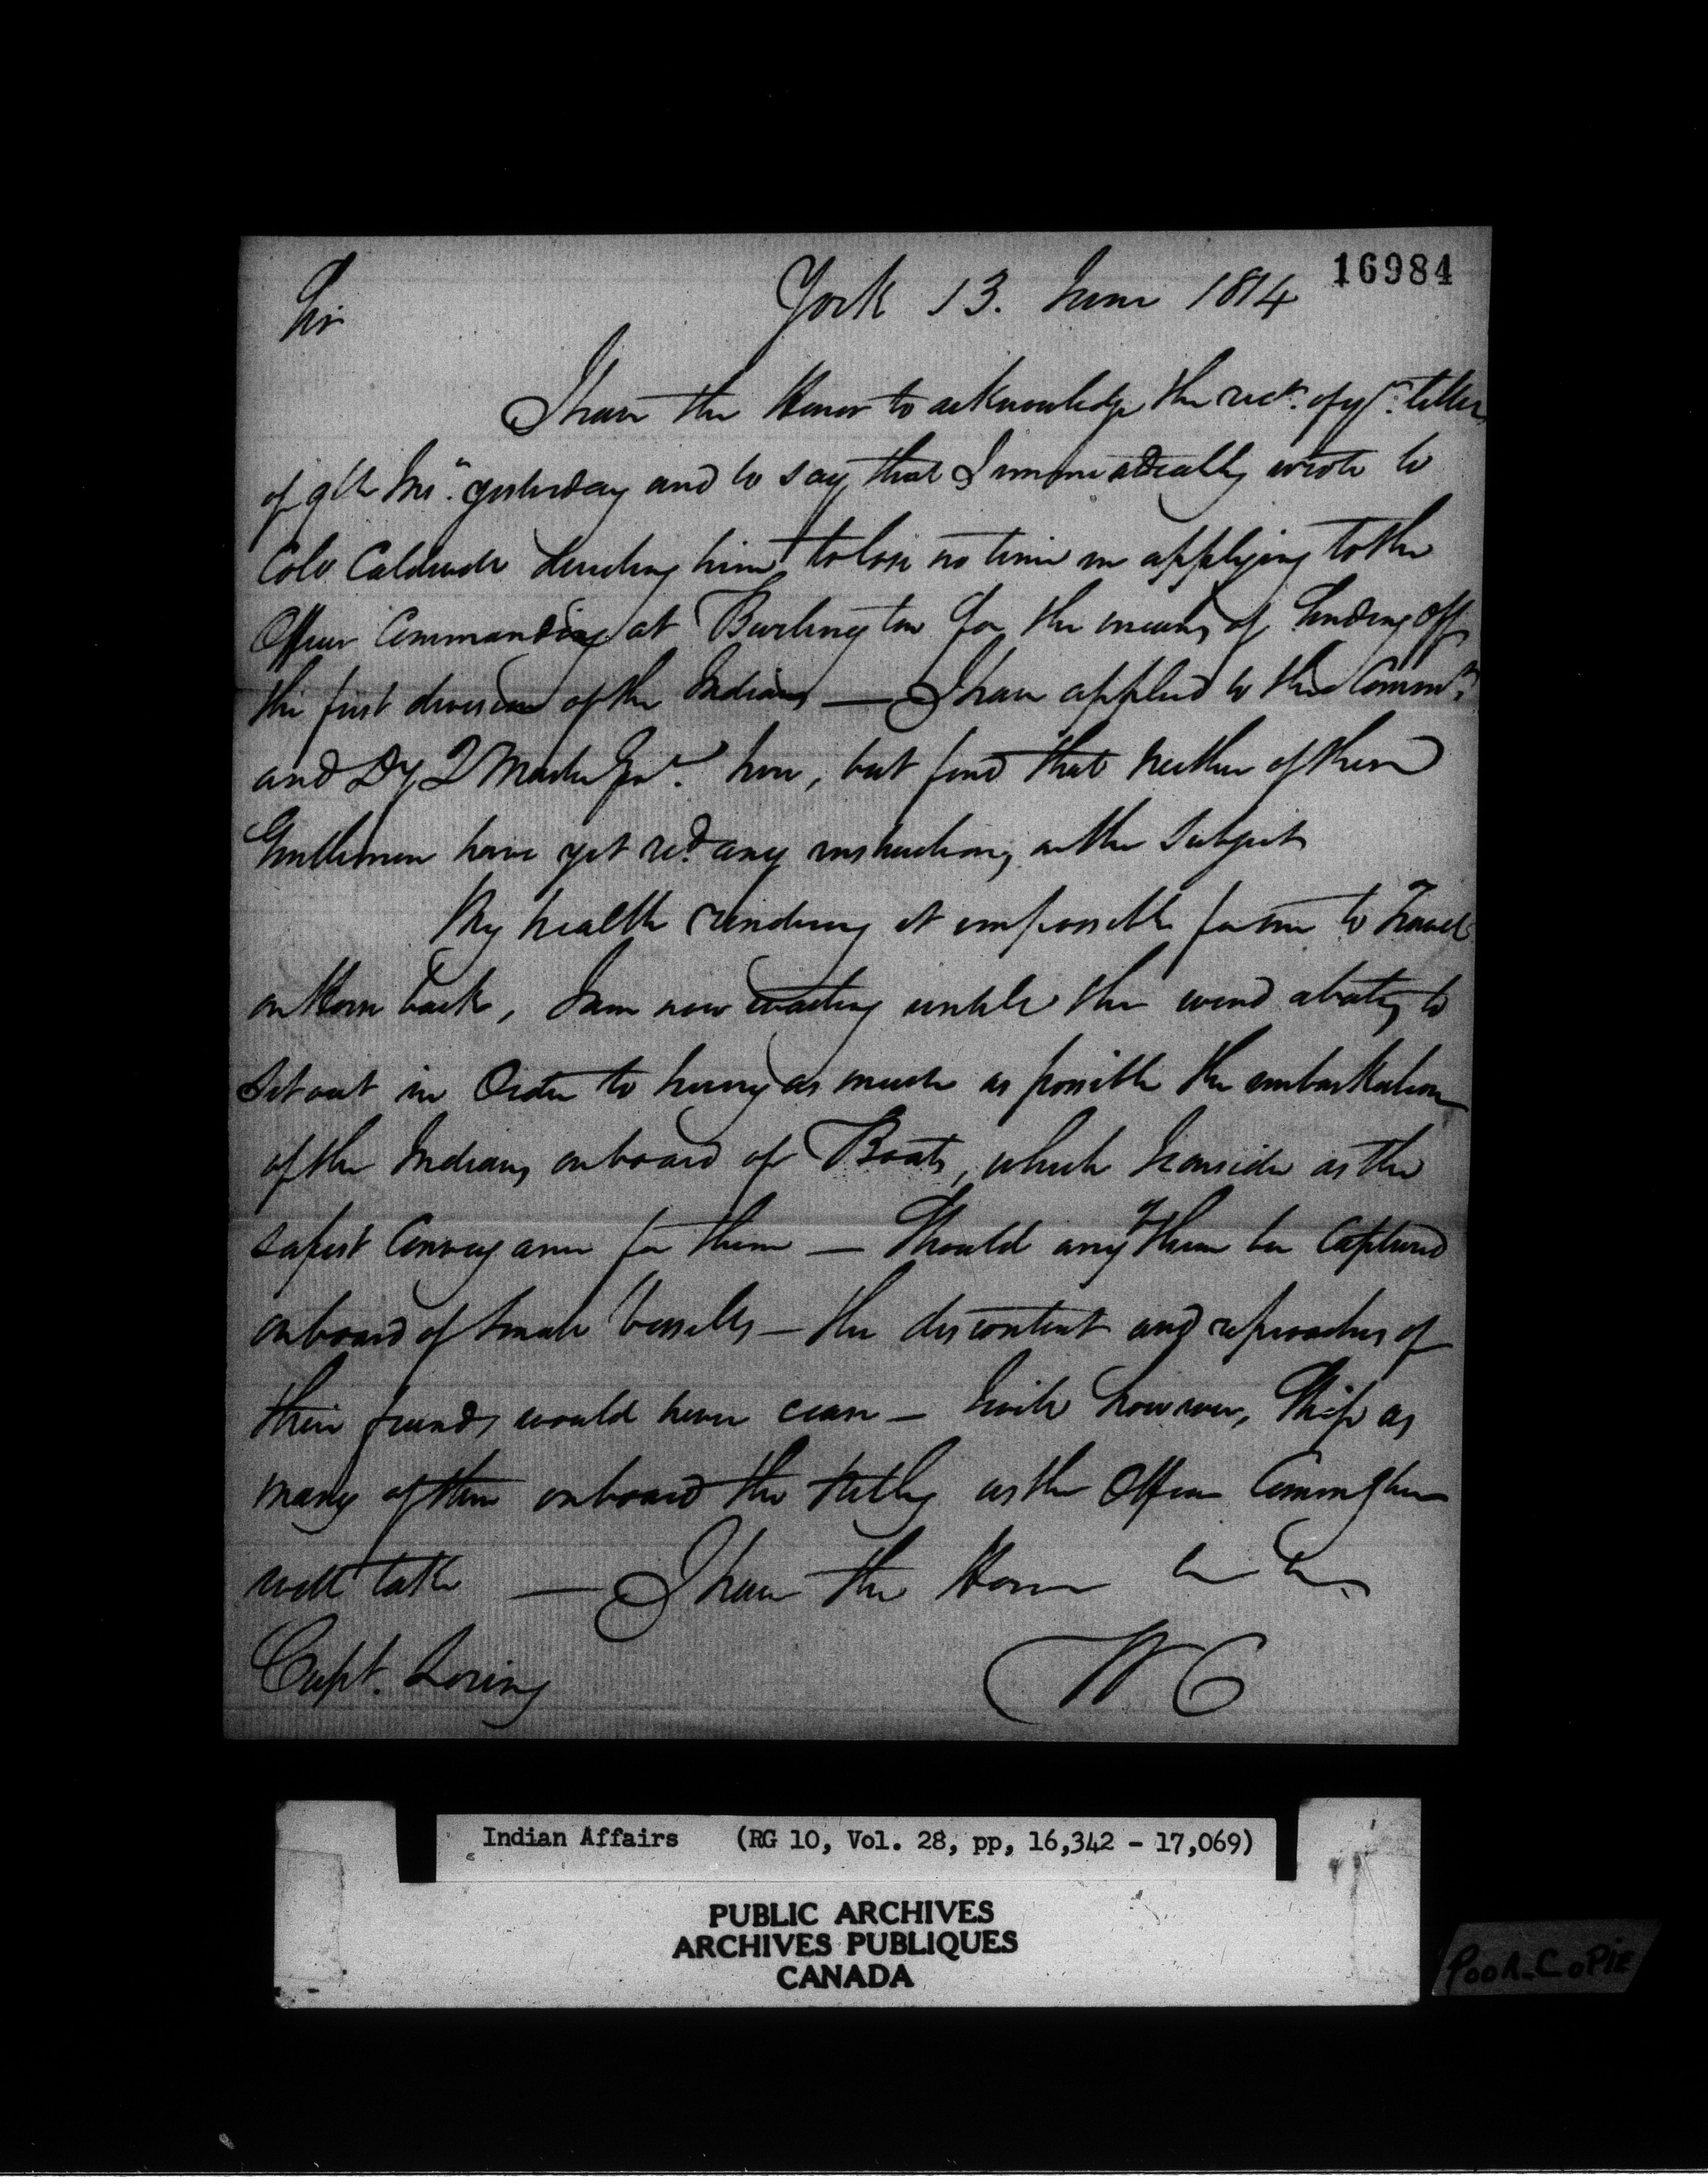 16984
Sir York 13. June 1814
I have the Honor to acknowledge the rect. of yr. letter
of 9th Inst. yesterday and to say that I immediately wrote to
Colo. Caldwell directing him to lose no time in applying to the
Officer Commanding at Burlington for the means of Sending off
the first division of the Indians — I have applied to the Commt.
and Dy Q Master Genl. here, but find that neither of them
Gentlemen have yet recd. any instructions on the Subject
My health rendering it impossible for me to Travel
on Horse back, I am now waiting untill the wind abates to
Set out in Order to hurry as much as possible the embarkation
of the Indians on board of Boats, which I consider as the
safest Conveyance for them — Should any of them be Captured
on board of Small Vessells — the discontent and reproaches of
their friends would never cease — I will however, Ship as
many of them on board the Netley as the Officer Commg her
will take — I have the Honor &c &c
Capt. Loring WC
Indian Affairs (RG 10, Vol. 28, pp, 16,342 - 17,069)
PUBLIC ARCHIVES
ARCHIVES PUBLIQUES
CANADA
POOR COPIE